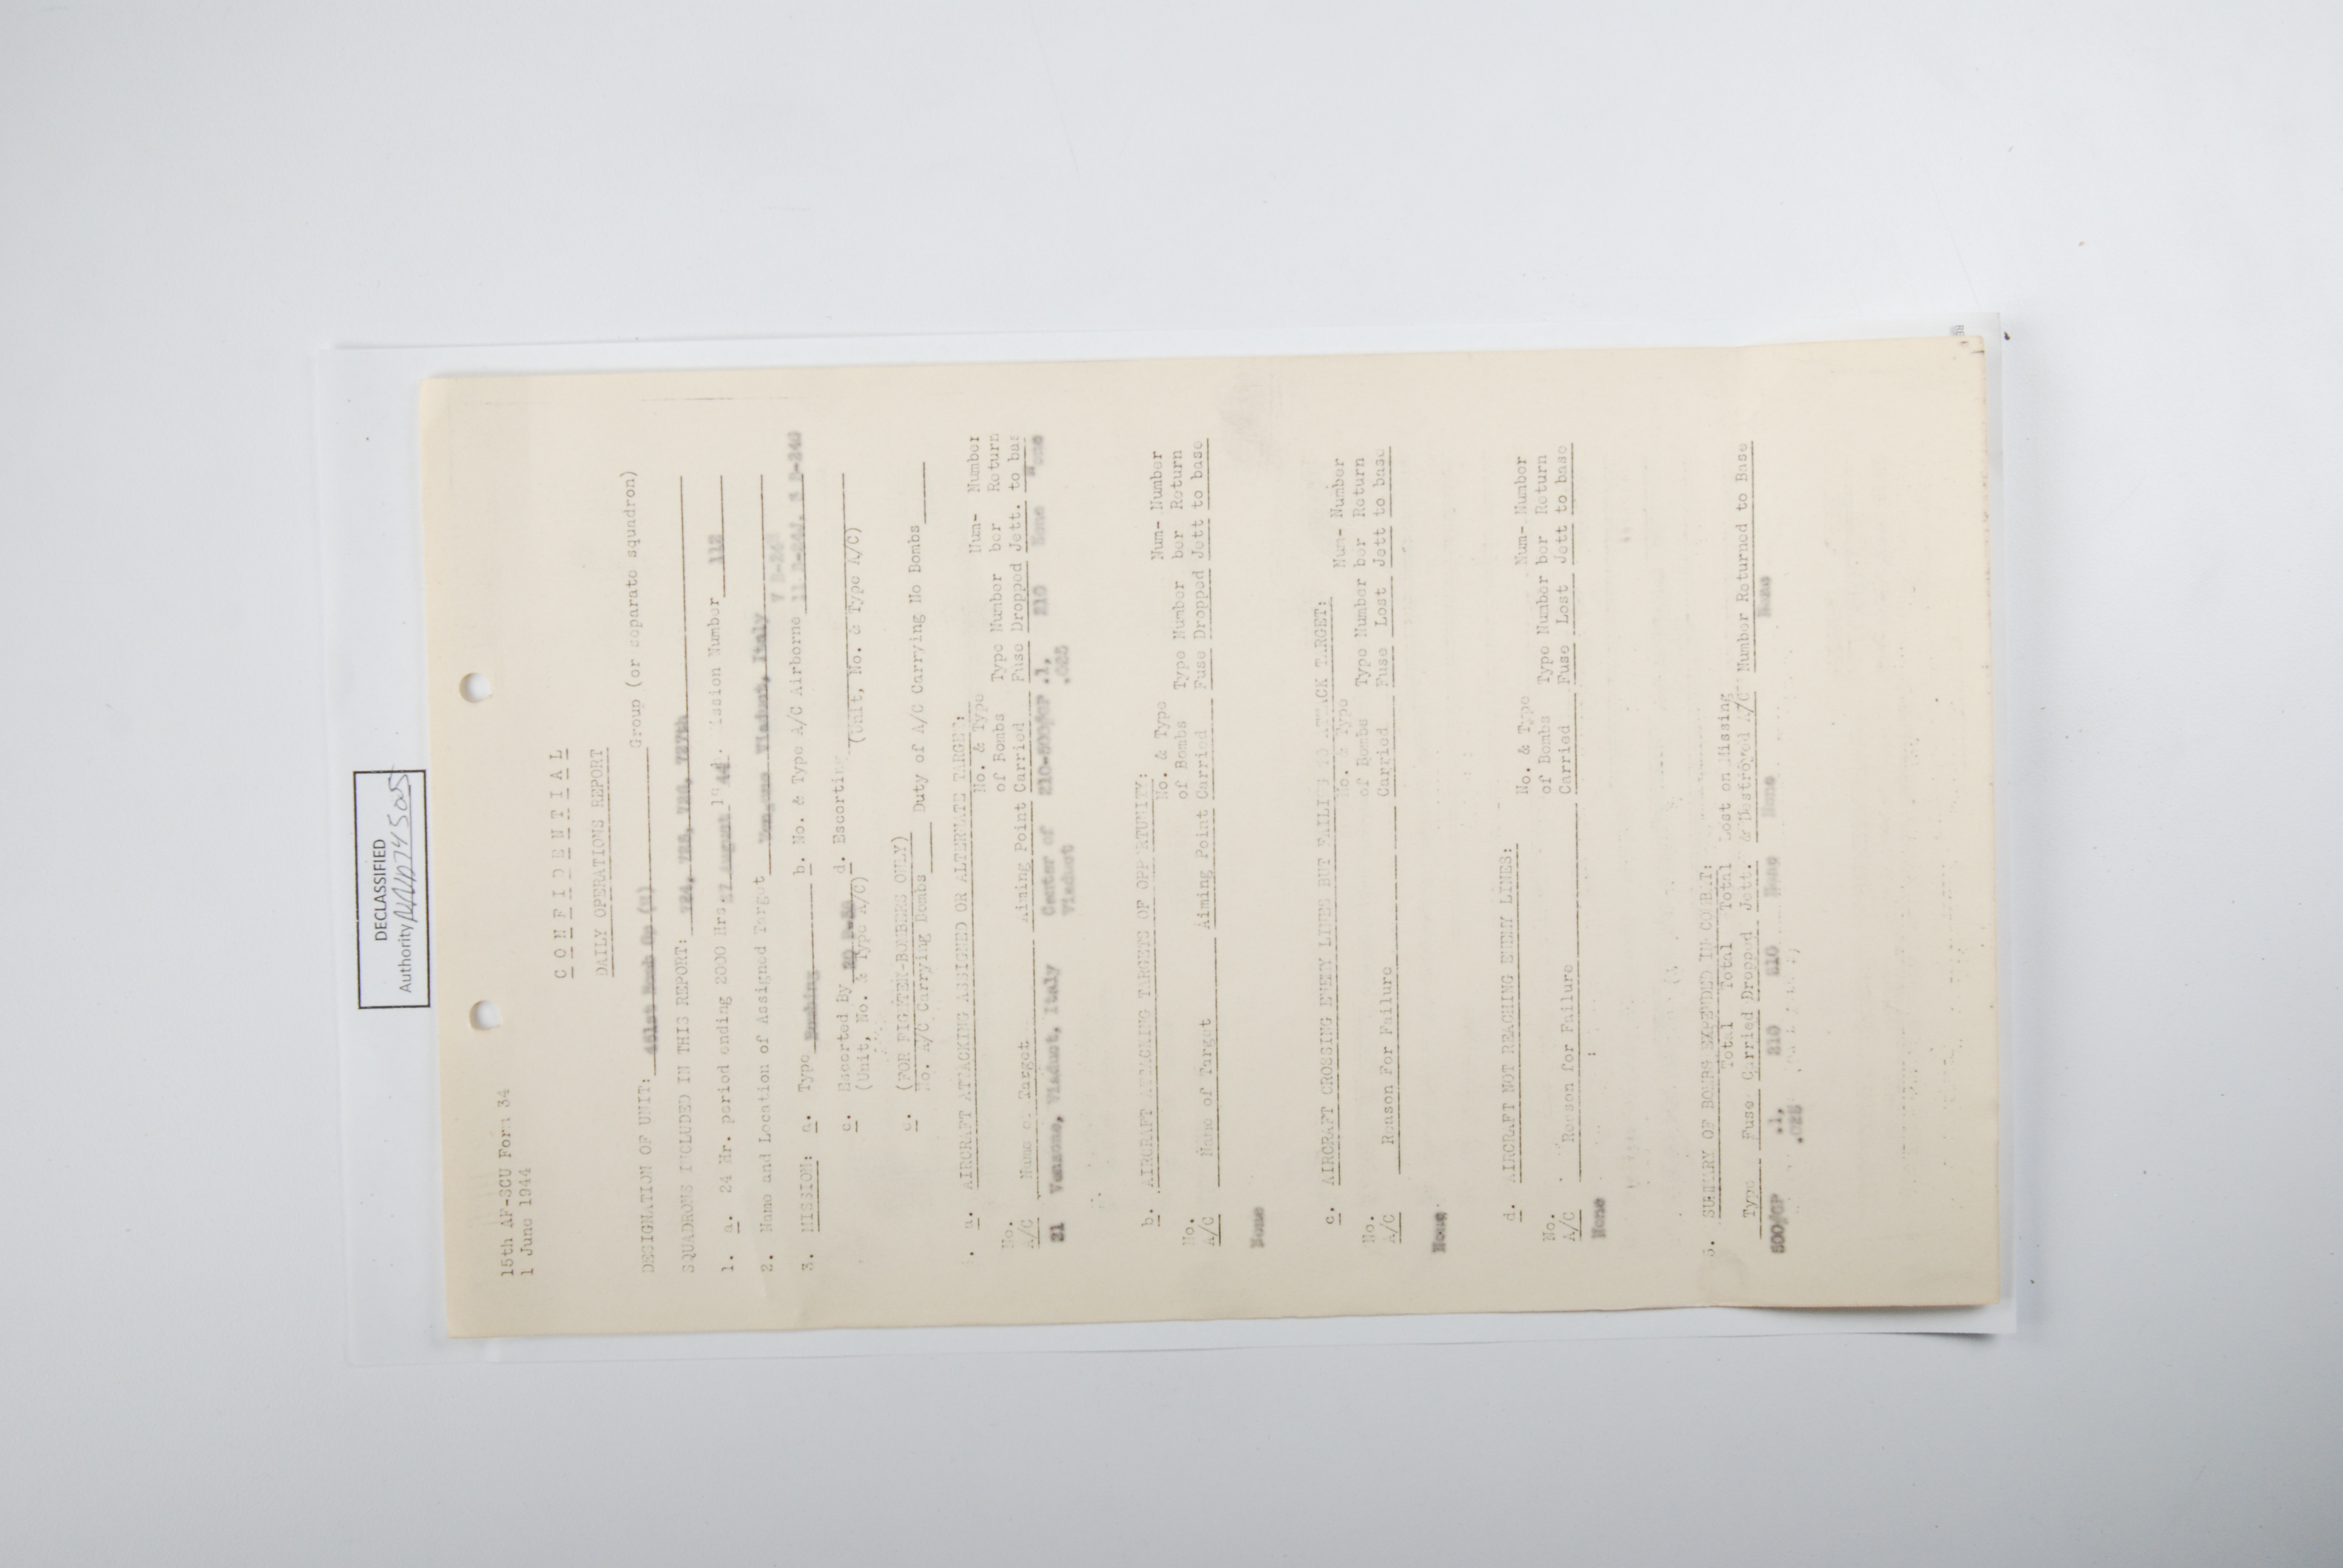 DECLASSIFIED
Authority NND745005
15th AF-SCU Form 34
1 June 1944
C O N F I D E N T I A L
DAILY OPERATIONS REPORT
DESIGNATION OF UNIT: 451st Bomb Gp (H) Group (or separate squadron)
SQUADRONS INCLUDED IN THIS REPORT: 724, 725, 726, 727th
1. a. 24 Hr. period ending 2000 Hrs. 27 August 1944. Mission Number 112
2. Name and Location of Assigned Target Venzone Viaduct, Italy
3. MISSION: a. Type Bombing b. No. & Type A/C Airborne
c. Escorted By d. Escorting
(Unit, No. & Type A/C) (Unit, No. & Type A/C)
(FOR FIGHTER-BOMBERS ONLY)
No. A/C Carrying Bombs Duty of A/C Carrying No Bombs
a. AIRCRAFT ATTACKING ASSIGNED OR ALTERNATE TARGET:
No. & Type Num- Number
No. of Bombs Type Number ber Return
A/C Name of Target Aiming Point Carried Fuse Dropped Jett. to bas
21 Venzone, Viaduct, Italy Center of 210-500#GP .1, 210 None None
Viaduct .025
b. AIRCRAFT ATTACKING TARGETS OF OPPORTUNITY:
No. & Type Num- Number
No. of Bombs Type Number ber Return
A/C Name of Target Aiming Point Carried Fuse Dropped Jett to base
None
c. AIRCRAFT CROSSING ENEMY LINES BUT FAILING TO ATTACK TARGET:
No. & Type Num- Number
No. of Bombs Type Number ber Return
A/C Reason For Failure Carried Fuse Lost Jett to base
None
d. AIRCRAFT NOT REACHING ENEMY LINES:
No. & Type Num- Number
No. of Bombs Type Number ber Return
A/C Reason for Failure Carried Fuse Lost Jett to base
None
5. SUMMARY OF BOMBS EXPENDED IN COMBAT:
Total Total Total Lost on Missing
Type Fuse Carried Dropped Jett. & Destroyed A/C Number Returned to Base
500#GP .1, 210 210 None None None
.025